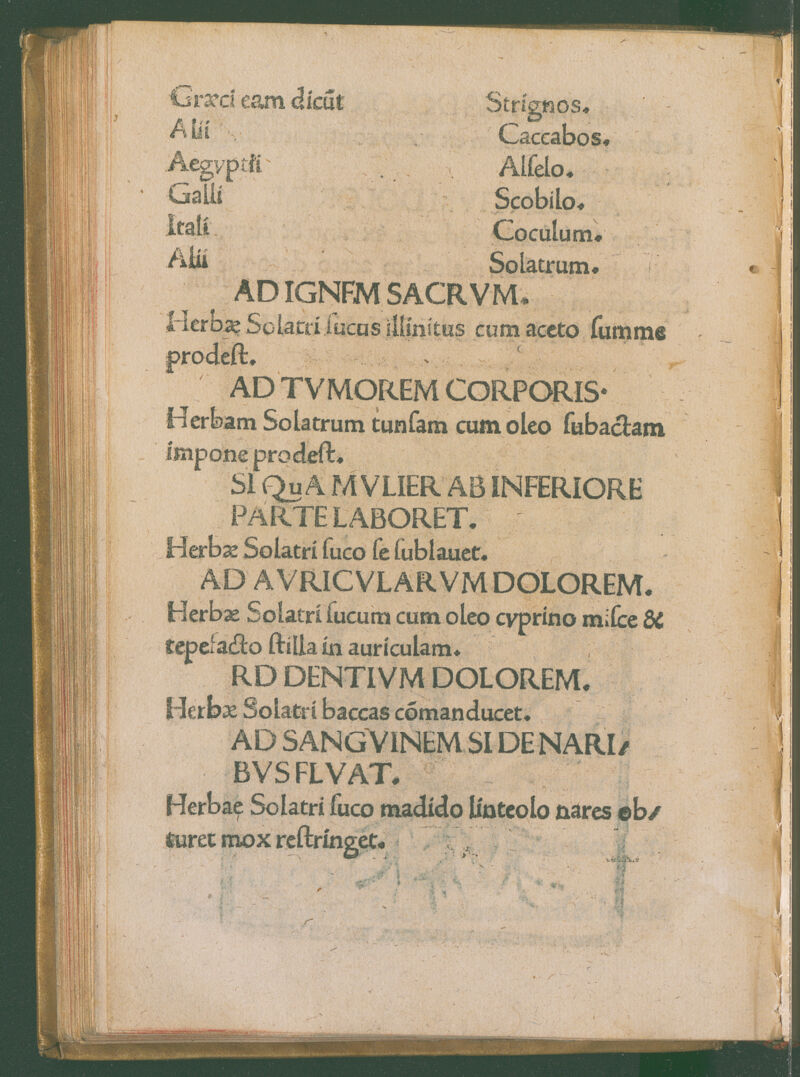 Græci eam dicūt Strignos.
Alii Caccabos.
Aegyptii Alſelo.
Galli Scobilo.
Itali Coculum.
Alii Solatrum.
AD IGNEM SACRVM.
Herbæ Solatri ſucus illinitus cum aceto ſumme
prodeſt.
AD TVMOREM CORPORIS.
Herbam Solatrum tunſam cum oleo ſubactam
impone prodeſt.
SI QuA MVLIER AB INFERIORE
PARTE LABORET.
Herbæ Solatri ſuco ſe ſublauet.
AD AVRICVLARVM DOLOREM.
Herbæ Solatri ſucum cum oleo cyprino miſce &
tepefacto ſtilla in auriculam.
RD DENTIVM DOLOREM.
Herbæ Solatri baccas cōmanducet.
AD SANGVINEM SI DE NARI/
BVS FLVAT.
Herbae Solatri ſuco madido linteolo nares ob/
turet mox reſtringet.